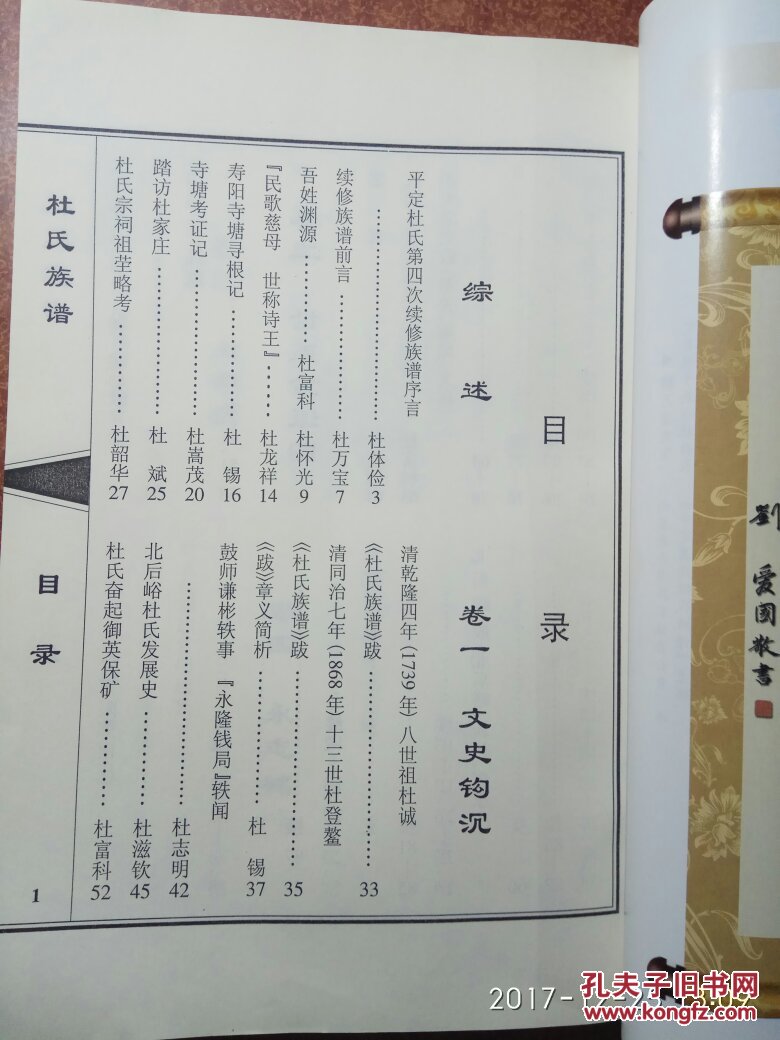 目录
综述
平定杜氏第四次续修族谱序言
……………………杜体俭 3
续修族谱前言……………杜万宝 7
吾姓渊源………杜富科 杜怀光 9
『民歌慈母 世称诗王』……杜龙祥 14
寿阳寺塘寻根记…………杜 锡 16
寺塘考证记………………杜嵩茂 20
踏访杜家庄………………杜 斌 25
杜氏宗祠祖茔略考…………杜韶华 27
卷一 文史钩沉
清乾隆四年(1739年)八世祖杜诚
《杜氏族谱》跋……………………33
清同治七年(1868年)十三世杜登鳌
《杜氏族谱》跋……………………35
《跋》章义简析………………杜 锡 37
鼓师谦彬轶事 『永隆钱局』轶闻
……………………杜志明 42
北后峪杜氏发展史…………杜滋钦 45
杜氏奋起御英保矿…………杜富科 52
杜氏族谱
目录
1
劉愛國敬書
2017-12-25
孔夫子旧书网
www.kongfz.com